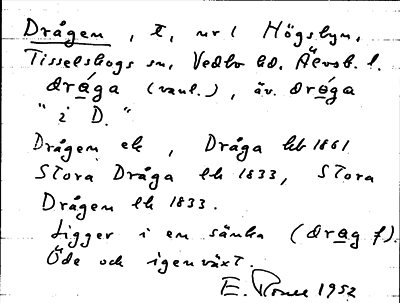 Drågen, t, nr 1 Högsbyn,
Tisselskogs sn, Vedbo hd, Älvsb. l.
dråga (vanl.), äv. dråga
" i D. "
Drågen ek, Dråga hb 1861
Stora Dråga lh 1833, Stora
Drågen lh 1833.
Ligger i en sänka (drag f).
Öde och igenväxt.
E. 1952